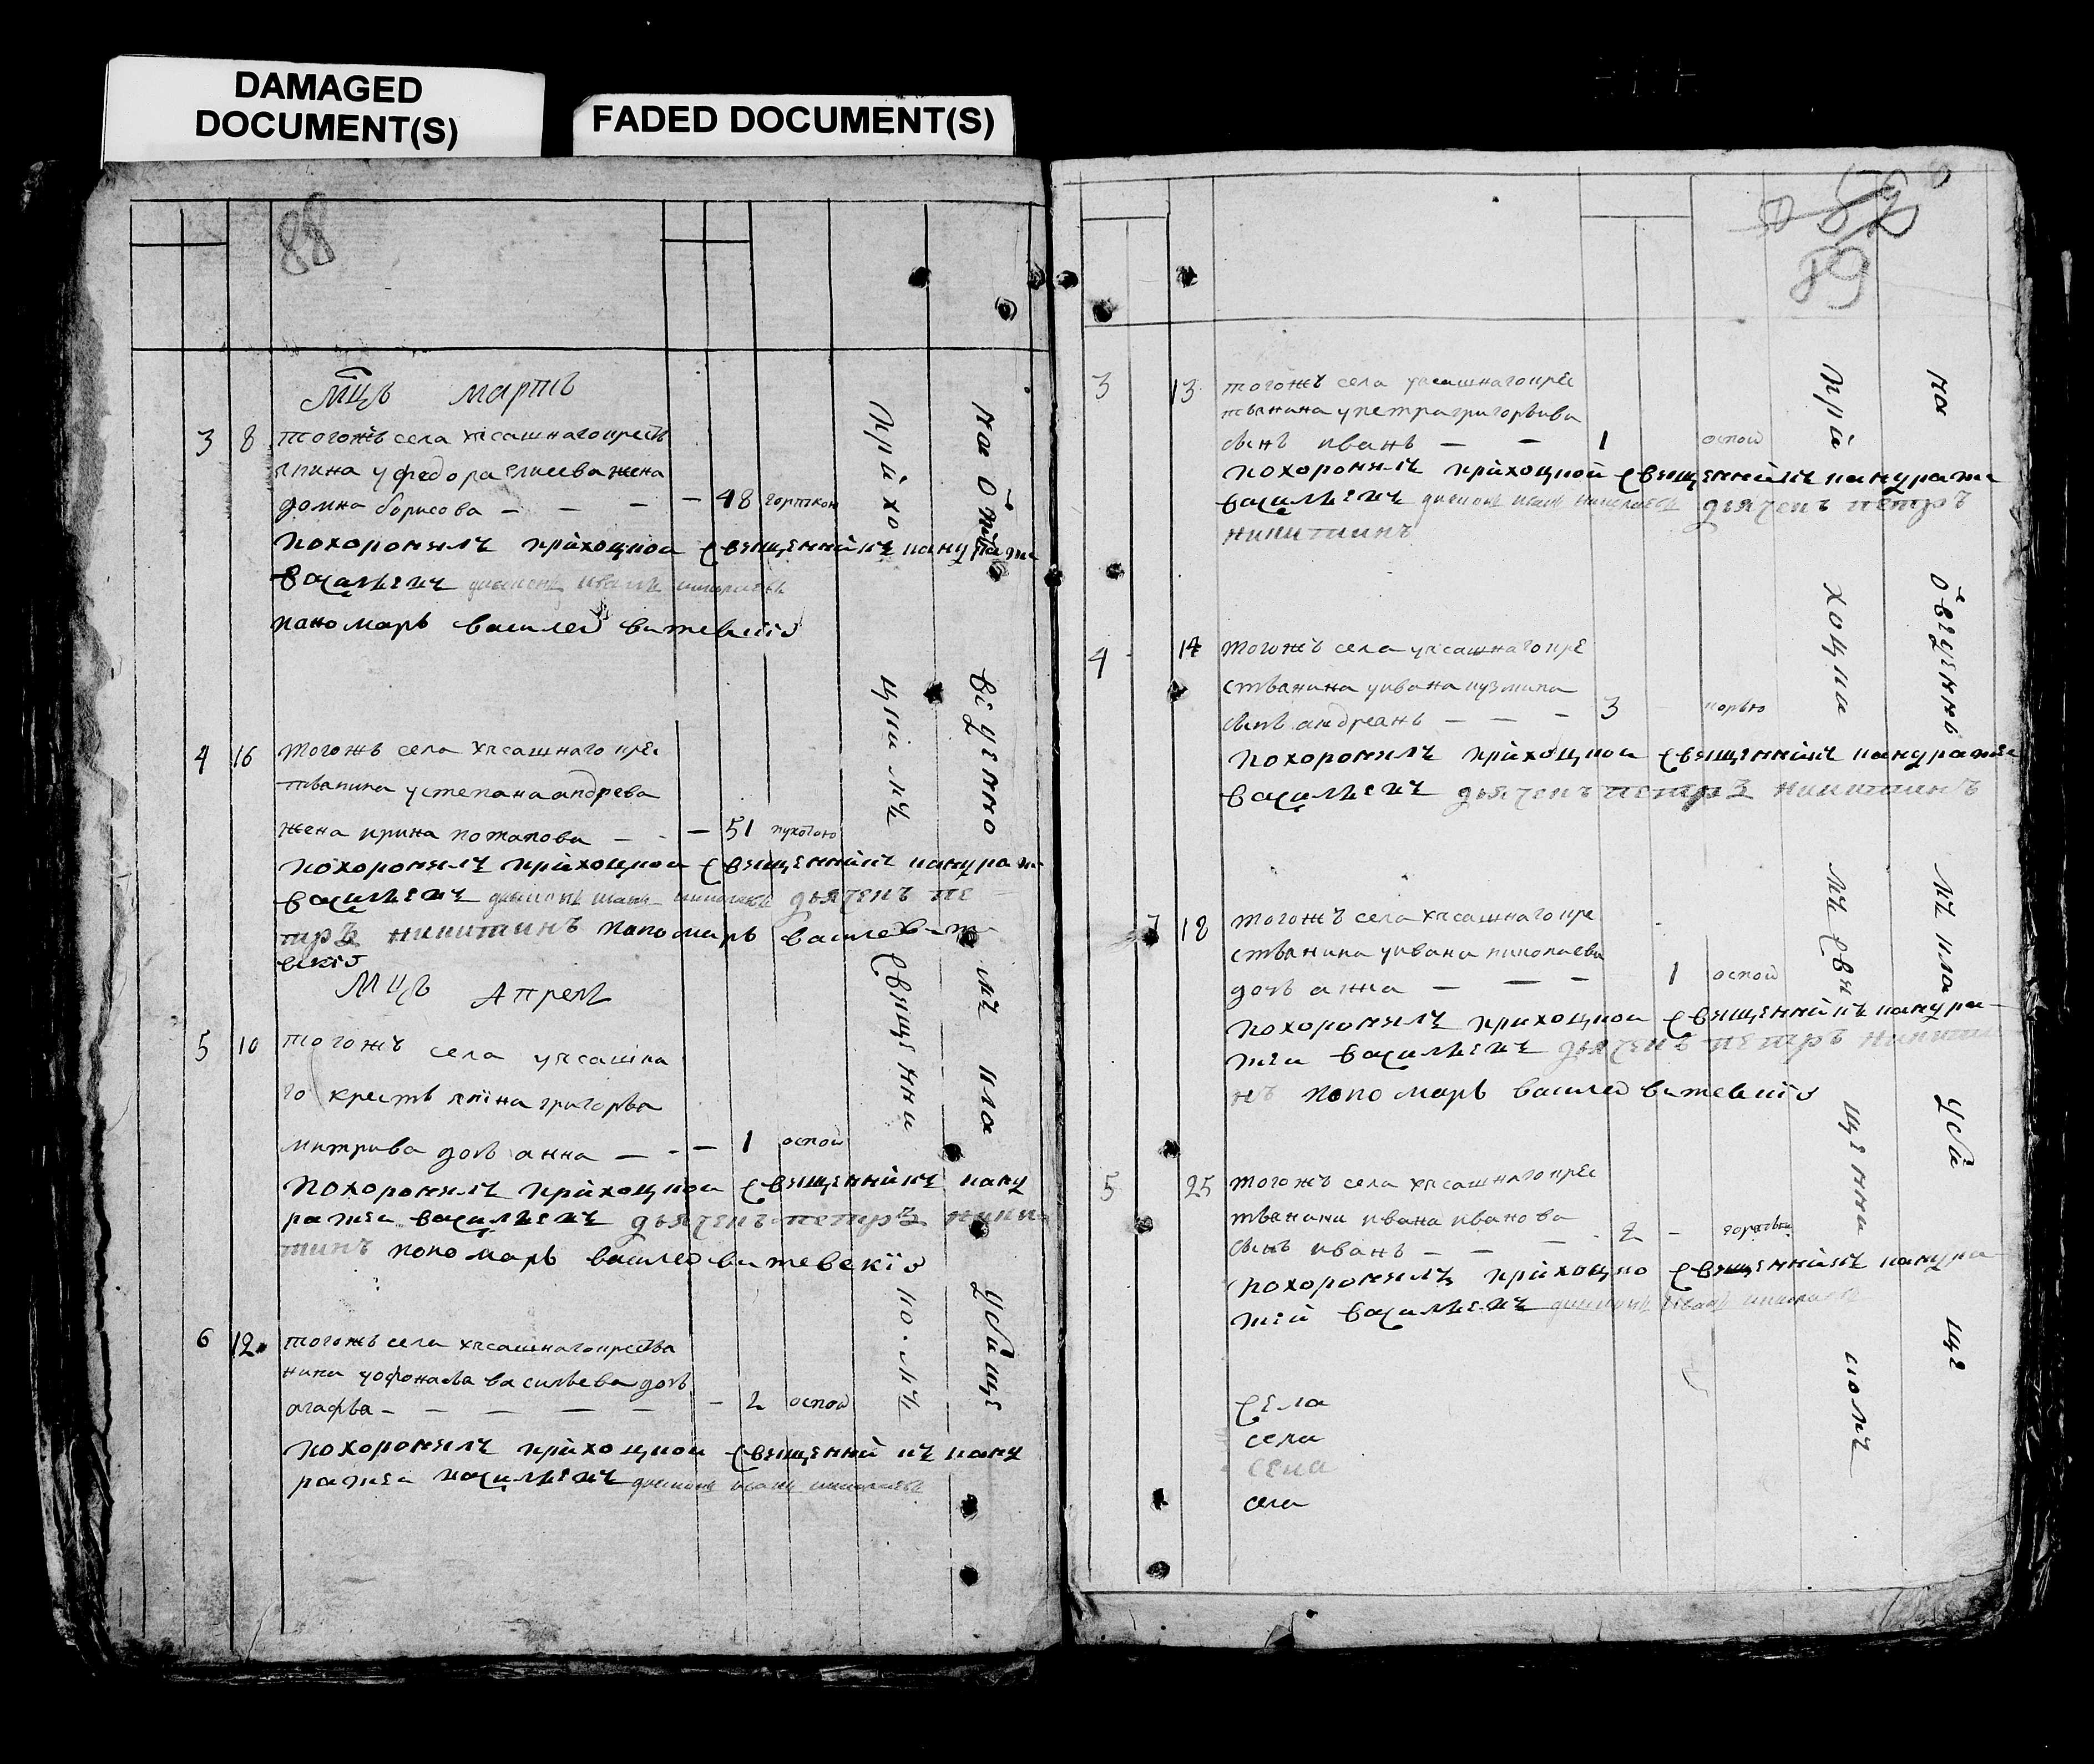 DAMAGED
DOCUMENT(S)
FADED DOCUMENT(S)
88
Мцъ мартъ
3 8 тогожъ села ясашнаго крестъ
янина у федора елисева жена
домна борисова — — — — 48
похоронилъ приходцкои священникъ кандрате
василиевъ диаконъ иванъ
пономарь василеи витевский
4 16 тогожъ села ясашнаго крес
тьянина устепана андрева
жена ирина потапова — - — 51
похоронилъ приходцкои священникъ кандрат
василиевъ диаконъ иванъ дьячекъ пе
тръ никитинъ пономарь василеи вит
вскiй
Мцъ Апрель
5 10 тогожъ села ясашна
го крестьянина григорья
митрива дочь анна — - — 1 оспой
похоронилъ приходцкои священникъ канд
ратеи василиевъ дьячекъ петръ ники
тинъ пономарь василеи витевскiй
6 12 тогожъ села ясашнаго крестья
нина уофонасья васильева дочь
агафья — — — — — — 2 оспой
похоронилъ приходцкои священникъ канд
ратеи василиевъ диаконъ иванъ
приходцкимъ священникомъ
на отведенномъ кладбище
89
3 13 тогожъ села ясашнаго крес
тьянина упетра григорьева
сынъ иванъ — — 1 оспой
похоронилъ приходцкой священникъ кандрате
василиевъ диаконъ иванъ дьячекъ петръ
никитинъ
4 14 тогожъ села ясашнаго кре
стьянина уивана кузмина
сынъ андреанъ — — — 3 корью
похоронилъ приходцкои священникъ кандратеи
василиевъ дьячекъ петръ никитинъ
7 18 тогожъ села ясашнаго кре
стьянина уивана николаева
дочь анна — — — 1 оспой
похоронилъ приходцкои священникъ кандра
теи василиевъ дьячекъ петръ никити
нъ пономарь василеи витевскiй
5 25 тогожъ села ясашнаго крес
тьянина ивана иванова
сынъ иванъ — — — 2 -
похоронилъ приходцко священникъ кандра
тiй василиевъ диаконъ иванъ
села
села
села
села
приходцки мъ священни комъ
на отведеннo мъ кла дби ще